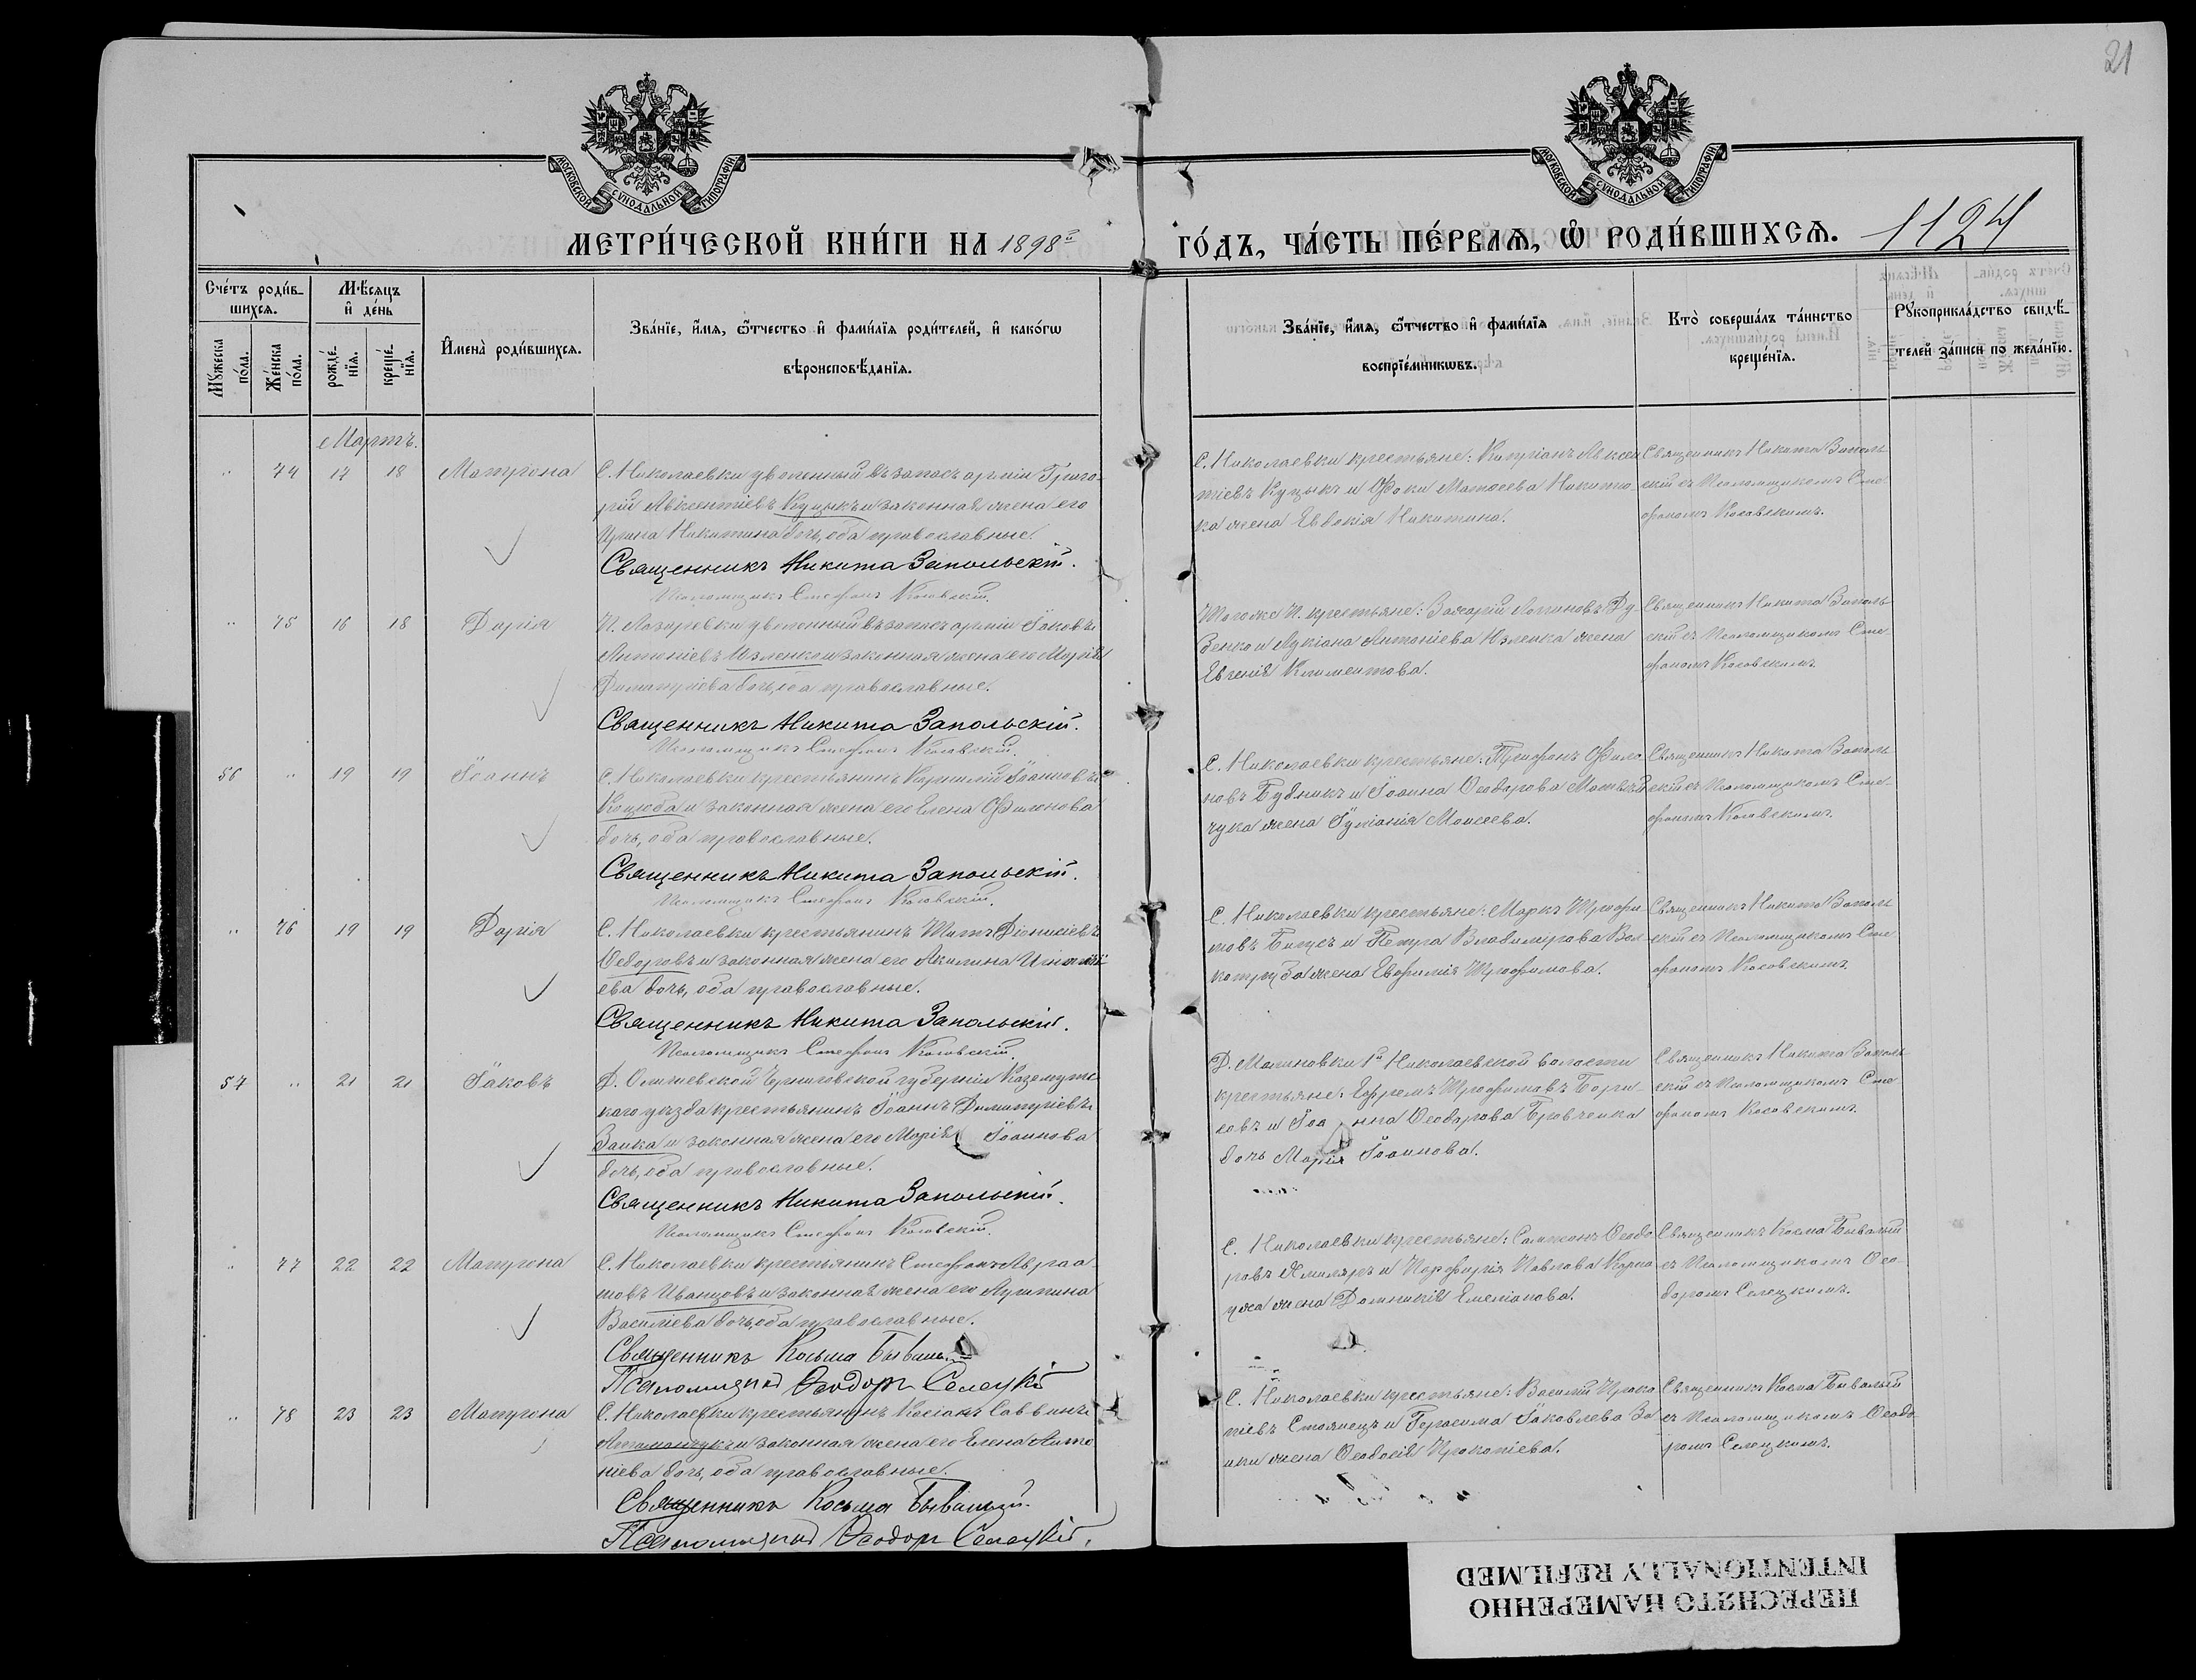 21
МОСКОВСКОЙ СѴНОДАЛЬНОЙ ТИПОГРАФІИ
МОСКОВСКОЙ СѴНОДАЛЬНОЙ ТИПОГРАФІИ
МЕТРИ́ЧЕСКОЙ КНИ́ГИ НА 1898й ГО́ДЪ, ЧА́СТЬ ПЕ́РВАѦ, Ѡ РОДИ́ВШИХСѦ. 1124
Сче́тъ роди́в-
шихсѧ.
Мꙋ́жеска по́ла.
Же́нска по́ла.
Мѣ́сѧцъ и҆ де́нь
рожде́-
нїѧ.
креще́-
нїѧ.
И҆мена̀ роди́вшихсѧ.
Зва́нїе, и҆́мѧ, ѻ҆́тчество и҆ фами́лїѧ роди́телей, и҆ како́гѡ
вѣроисповѣ́данїѧ.
Зва́нїе, и҆́мѧ, ѻ҆́тчество и҆ фами́лїѧ
воспрїе́мникѡвъ.
Кто̀ соверша́лъ та́инство
креще́нїѧ.
Рꙋкоприкла́дство свидѣ́-
телей за́писи по жела́нїю.
Мартъ.
" 74 17 18 Матрона
С. Николаевки уволенный въ запасъ арміи Григо-
рій Авксентіевъ Куцыкъ и законная жена его
Ирина Никитина дочь, оба православные.
Священникъ Никита Запольскій.
Псаломщикъ Стефанъ Косовскій.
С. Николаевки крестьяне: Кипріанъ Авксен
тіевъ Куцыкъ и Фоки Матѳеева Никитю-
ка жена Евдокія Никитина.
Священникъ Никита Заполь
скій съ Псаломщикомъ Сте
фаномъ Косовскимъ.
" 75 16 18 Дарія
П. Лазаревки уволенный въ запасъ арміи Іаковъ
Антоніевъ Изленко и законная жена его Марія
Димитріева дочь, оба православные.
Священникъ Никита Запольскій.
Псаломщикъ Стефанъ Косовскій.
Того же П. крестьяне: Захарій Логиновъ Ду
Лукіана Антоніева Изленка жена
Евгенія Климентова.
Священникъ Никита Заполь
скій съ Псаломщикомъ Сте
фаномъ Косовскимъ
56 " 19 19 Іоаннъ
С. Николаевки крестьянинъ Корнилій Іоанновъ
Коцюба и законная жена его Елена Филонова
дочь, оба православные.
Священникъ Никита Запольскій.
Псаломщикъ Стефанъ Косовскій.
С. Николаевки крестьяне: Трифонъ Фило
новъ Будникъ и Іоанна Ѳеодорова Матвѣй
чука жена Іуліанія Моисеева.
Священникъ Никита Заполь
скій съ Псаломщикомъ Сте-
фаномъ Косовскимъ.
" 76 19 19 Дарія
С. Николаевки крестьянинъ Титъ Діонисіевъ
Ѳедоровъ и законная жена его Акилина Игнаті
ева дочь, оба православные.
Священникъ Никита Запольскій.
Псаломщикъ Стефанъ Косовскій.
С. Николаевки крестьяне: Маркъ Трофи
мовъ и Петра Владимірова Вол
жена Евфимія Трофимова.
Священникъ Никита Заполь
скій съ Псаломщикомъ Сте
фаномъ Косовскимъ.
57 " 21 21 Іаковъ
Д. Черниговской губерніи
каго уѣзда крестьянинъ Іоаннъ Димитріевъ
Заика и законная жена его Марія Іоаннова
дочь, оба православные.
Священникъ Никита Запольскій.
Псаломщикъ Стефанъ Косовскій.
Д. Малиновки 1й Николаевской волости
крестьяне: Ефремъ Трофимовъ Бори-
совъ и Іоанна Ѳеодорова Бровченка
дочь Марія Іоаннова.
Священникъ Никита Заполь
скій съ Псаломщикомъ Сте
фаномъ Косовскимъ.
" 77 22 22 Матрона
С. Николаевки крестьянинъ Стефанъ Авраа-
мовъ Иванцовъ и законная жена его
Василіева дочь, оба православные.
Священникъ Косьма
Псаломщикъ Ѳеодоръ Селецкій
С. Николаевки крестьяне: Ѳеодо
ровъ и Порфирія Павлова
жена Домникія Емеліанова.
Священникъ Косма Бывалый
съ Псаломщикомъ Ѳео-
доромъ Селецкимъ.
" 78 23 23 Матрона
С. Николаевки крестьянинъ Касіанъ Саввинъ
Атаманчукъ и законная жена его Елена Анто
ніева дочь, оба православные.
Священникъ Косьма Бывалый.
Псаломщикъ Ѳеодоръ Селецкій.
С. Николаевки крестьяне: Василій Проко
піевъ Стоянецъ и Герасима Іаковлева За
ики жена Ѳеодосія Прокопіева.
Священникъ Косма Бывалый
съ Псаломщикомъ Ѳеодо-
ромъ Селецкимъ.
ПЕРЕСНЯТО НАМЕРЕННО
INTENTIONALLY REFILMED